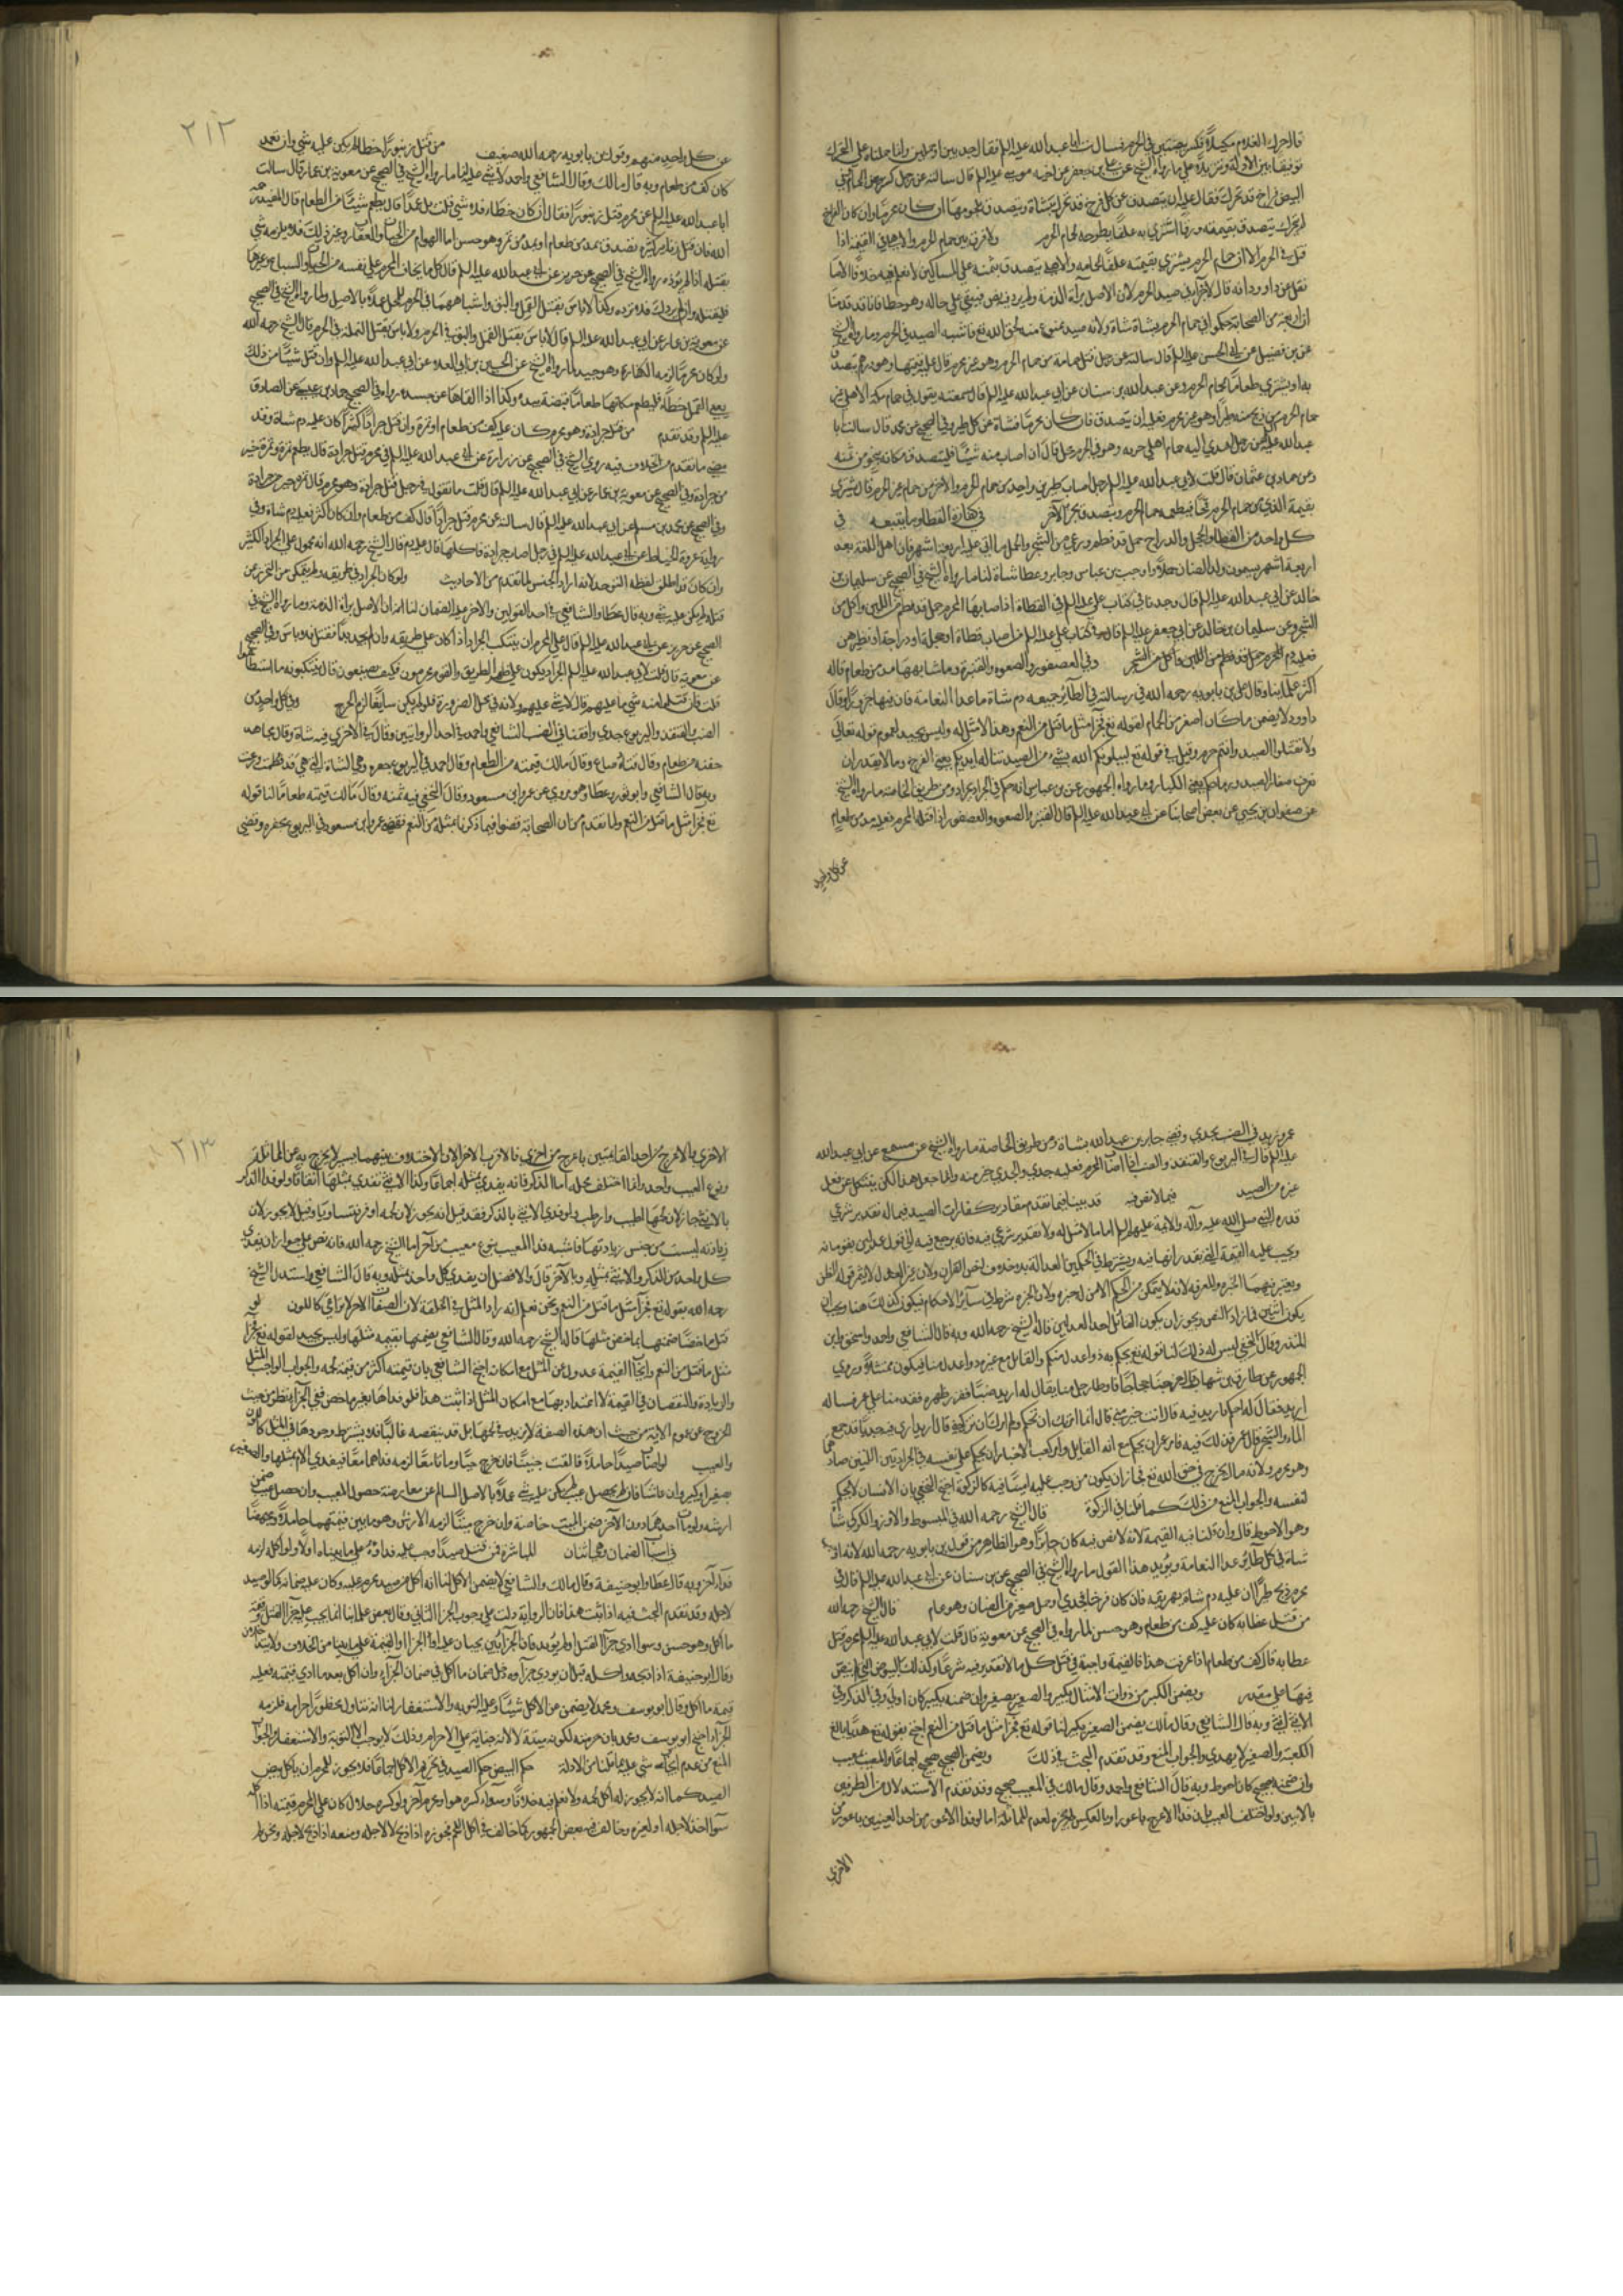 قال حرك الغلام مكيلا فكسر بيضتين في الحرم فسالت ابا عبد الله عليه السلم فقال جديين او حملين وانما حملناه على التحرك
توفيقا بين الادلة ويزيده على ما رواه الشيخ عن علي بن جعفر عن اخيه موسى عليه السلم قال سالته عن رجل كسر بيض الحمام وفي
البيض فراخ قد تحرك فقال عليه ان يتصدق عن كل فرخ قد تحرك بشاة ويتصدق بلحومها ان كان محرما وان كان الفراخ
لم يتحرك يتصدق بقيمته ورقا اشترى به علفا يطرحه لحمام الحرم ولا فرق بين حمام الحرم والاهلي في القيمة اذا
قتل في الحرم الا ان حمام الحرم يشترى بقيمته علف لحمامه والاهلي يتصدق بثمنه على المساكين لا نعلم فيه خلافا الا ما
نقل عن داود انه قال لا جزاء في صيد الحرم لان الاصل براءة الذمة ولم يرد فيه نص فيبقى على حاله وهو خطا فانا قد قدمنا
ان اربعة من الصحابة حكموا في حمام الحرم بشاة شاة ولانه صيد ممنوع منه لحق الله تع فاشبه الصيد في الحرم وما رواه الشيخ
عن بن فضيل عن ابي الحسن عليه السلم قال سالته عن رجل قتل حمامة من حمام الحرم وهو غير محرم قال عليه قيمتها وهو درهم يتصدق
به او يشتري طعاما لحمام الحرم وعن عبد الله بن سنان عن ابي عبد الله عليه السلم قال سمعته يقول في حمام مكة الاهلي غير
حمام الحرم من ذبح منه طيرا وهو غير محرم فعليه ان يتصدق فان كان محرما فشاة عن كل طير وفي الصحيح عن محمد قال سالت ابا
عبد الله عليه السلم عن رجل اهدي اليه حمام اهلي جيء به وهو في الحرم محل قال ان اصاب منه شيئا فليتصدق مكانه بنحو من ثمنه
وعن حماد بن عثمان قال قلت لابي عبد الله عليه السلم رجل اصاب طيرين واحد من حمام الحرم والاخر من حمام غير الحرم قال يشتري
بقيمة الذي من حمام الحرم قمحا فيطعمه حمام الحرم ويتصدق بجزاء الاخر في كفارة القطا وما يتبعه في
كل واحد من القطا والحجل والدراج حمل قد فطم ورعى من الشجر والحمل ما اتى عليه اربعة اشهر فان اهل اللغة بعد
اربعة اشهر يسمون ولد الضان حملا واوجب بن عباس وجابر وعطا شاة لنا ما رواه الشيخ في الصحيح عن سليمان بن
خالد عن ابي عبد الله عليه السلم قال وجدنا في كتاب علي عليه السلم في القطاة اذا اصابها المحرم حمل قد فطم من اللبن واكل من
الشجر وعن سليمان بن خالد عن ابي جعفر عليه السلم قال في كتاب علي عليه السلم من اصاب قطاة او حجلة او دراجة او نظيرهن
فعليه دم للمحرم حمل قد فطم من اللبن واكل من الشجر وفي العصفور والصعوه والقنبرة وما شابهها مد من طعام قاله
اكثر علمائنا وقال علي بن بابويه رحمه الله في رسالته في الطائر جميعه دم شاة ما عدا النعامة فان فيها جزورا وقال
داود لا يضمن ما كان اصغر من الحمام لقوله تع فجزا مثل ما قتل من النعم وهذا لا مثل له وليس بجيد لعموم قوله تعالى
ولا تقتلوا الصيد وانتم حرم وقيل في قوله تع ليبلونكم الله بشيء من الصيد تناله ايديكم يعني الفرخ وما لا يقدر ان
نفر من صغار الصيد ورماحكم يعني الكبار وما رواه الجمهور عن بن عباس انه حكم في الجراد بجزاء ومن طريق الخاصة ما رواه الشيخ
عن صفوان بن يحيى عن بعض اصحابنا عن ابي عبد الله عليه السلم قال القنبر والصعوه والعصفور اذا قتله المحرم فعليه مد من طعام
عن كل واحد
٢١٢
عن كل واحد منهم وقول بن بابويه رحمه الله ضعيف من قتل زنبورا خطا لم يكن عليه شي وان تعمد
كان كف من طعام وبه قال مالك وقال الشافعي واحمد لا شي عليه لنا ما رواه الشيخ في الصحيح عن معوية بن عمار قال سالت
ابا عبد الله عليه السلم عن محرم قتل زنبورا فقال ان كان خطاء فلا شي قلت بل عمدا قال يطعم شيئا من الطعام قال المفيد رحمه
الله فان قتل زنابير كثيرة تصدق بمد من طعام او مد من تمر وهو حسن اما الهوام من الحيات والعقارب وغير ذلك فلا يلزمه شي
بقتله اذا لم تؤذه رواه الشيخ في الصحيح عن حريز عن ابي عبد الله عليه السلم قال كل ما يخاف المحرم على نفسه من الحيات والسباع وغيرها
فليقتله وان لم يردك فلا ترده وكذا لا باس بقتل القمل والبق واشباههما في الحرم للمحل عملا بالاصل ولما رواه الشيخ في الصحيح
عن معوية بن عمار عن ابي عبد الله عليه السلم قال لا باس بقتل القمل والبق في الحرم ولا باس بقتل النملة في الحرم قال الشيخ رحمه الله
ولو كان محرما لزمه الكفارة وهو جيد لما رواه الشيخ عن الحسين بن ابي العلاء عن ابي عبد الله عليه السلم وان قتل شيئا من ذلك
يعني القمل خطأ فليطعم مكانها طعاما قبضة بيده وكذا اذا القاها عن جسده رواه في الصحيح حماد بن عيسى عن الصادق
عليه السلم وقد تقدم من قتل جرادة وهو محرم كان عليه كف من طعام او تمرة وان قتل جرادا كثيرا كان عليه دم شاة وقد
مضى ما تقدم من الخلاف فيه روى الشيخ في الصحيح عن زرارة عن ابي عبد الله عليه السلم في محرم قتل جرادة قال يطعم تمرة وتمرة خير
من جرادة وفي الصحيح عن معوية بن عمار عن ابي عبد الله عليه السلم قال قلت ما تقول في رجل قتل جرادة وهو محرم قال تمرة خير من جرادة
وفي الصحيح عن محمد بن مسلم عن ابي عبد الله عليه السلم قال سالته عن محرم قتل جرادا قال كف من طعام وان كان اكثر فعليه دم شاة وفي
رواية عروة الحناط عن ابي عبد الله عليه السلم في رجل اصاب جرادة فاكلها قال عليه دم قال الشيخ رحمه الله انه محمول على الجراد الكثير
وان كان قد اطلق لفظة التوحد لانه اراد الجنس لما تقدم من الاحاديث ولو كان الجراد في طريقه ولم يتمكن من التحرز عن
قتله لم يكن عليه شي وبه قال عطا والشافعي في احد القولين والاخر عليه الضمان لنا ان الاصل براة الذمة وما رواه الشيخ في
الصحيح عن حريز عن ابي عبد الله عليه السلم قال على المحرم ان يتنكب الجراد اذا كان على طريقه وان لم يجد بدا فقتله فلا باس وفي الصحيح
عن معوية قال قلت لابي عبد الله عليه السلم الجراد يكون على ظهر الطريق والقوم محرمون فكيف يصنعون قال يتنكبونه ما استطاعوا
قلت فان قتلوا منه شي ما عليهم قال لا شي عليهم ولانه في محل الضرورة فلو لم يكن سايغا لزم الحرج وفي كل واحد من
الضب والقنفذ واليربوع جدي وافقنا في الضب الشافعي واحمد في احد الروايتين وقال في الاخرى فيه شاة وقال مجاهد
حفنة من طعام وقال قتادة صاع وقال مالك قيمته من الطعام وقال احمد في اليربوع جفره وهي الشاة التي هي قد فطمت ورعت
وبه قال الشافعي وابو ثور وعطا وهو مروي عن عمر وابن مسعود وقال النخعي فيه ثمنه وقال مالك قيمته طعاما لنا قوله
تع فجزا مثل ما قتل من النعم ولما تقدم من ان الصحابة قضوا فيما ذكرنا بمثله من النعم فقضى عمر وابن مسعود في اليربوع بجفره وقضى
عمر وزيد في الضب بجدي وقضى جابر بن عبد الله بشاة ومن طريق الخاصة ما رواه الشيخ عن مسمع عن ابي عبد الله
عليه السلم قال في اليربوع والقنفذ والضب اذا اصابه المحرم فعليه جدي والجدي خير منه وانما جعل هذا لكي ينكل عن فعل
غيره من الصيد فيما لا نص فيه قد بينا فيما تقدم مقادير كفارات الصيد فيما له تقدير شرعي
قدره النبي صلى الله عليه وآله والائمة عليهم السلم اما ما لا مثل له ولا تقدير شرعي فيه فانه يرجع فيه الى قول عدلين يقومانه
ويجب عليه القيمة التي يقدرانها فيه ويشترط في الحكمين العدالة بلا خلاف لنص القران ولان غير العدل لا يثمر قوله الظن
ويعتبر فيهما الخبرة والمعرفة لانه لا يتمكن من الحكم الا من له خبرة ولان الخبرة شرط في سائر الاحكام فيكون كذلك هنا ويجب ان
يكون اثنين فما زاد للنص ويجوز ان يكون القاتل احد العدلين قاله الشيخ رحمه الله وبه قال الشافعي واحمد واسحق وابن
المنذر وقال النخعي ليس له ذلك لنا قوله تع يحكم به ذوا عدل منكم والقاتل مع غيره ذوا عدل منا فيكون ممتثلا وروى
الجمهور عن طارق بن شهاب قال خرجنا حجاجا فاوطا رجل منا يقال له اربد ضبا ففزر ظهره فقدمنا على عمر فساله
اربد فقال له احكم يا اربد فيه قال انت خير مني قال انما امرتك ان تحكم ولم امرك ان تزكيني قال اربد ارى فيه جديا قد جمع
الماء والشجر قال عمر فذلك فيه فامر عمر ان يحكم مع انه القاتل وامر كعب الاحبار ان يحكم على نفسه في الجرادتين اللتين صادهما
وهو محرم ولانه مال يخرج في حق الله تع فجاز ان يكون من وجب عليه امينا فيه كالزكوة احتج النخعي بان الانسان لا يحكم
لنفسه والجواب المنع من ذلك كما قلنا في الزكوة قال الشيخ رحمه الله في المبسوط والاوز والكركي شاة
وهو الاحوط قال وان قلنا فيه القيمة لانه لا نص فيه كان جائزا وهو الظاهر من قول بن بابويه رحمه الله لانه اوجب
شاة في كل طائر عدا النعامة ويؤيد هذا القول ما رواه الشيخ في الصحيح عن بن سنان عن ابي عبد الله عليه السلم قال في
محرم ذبح طيرا ان عليه دم شاة يهريقه فان كان فرخا فجدي او حمل صغير من الضان وهو عام قال الشيخ رحمه الله
من قتل عظاية كان عليه كف من طعام وهو حسن لما رواه في الصحيح عن معوية قال قلت لابي عبد الله عليه السلم محرم قتل
عظاية قال كف من طعام اذا عرفت هذا فالقيمة واجبة في قتل كل ما لا تقدير فيه شرعا وكذلك البيوض التي لا نص
فيها على مقدر ويضمن الكبير من ذوات الامثال بكبير والصغير بصغير وان ضمنه بكبير كان اولى وفي الذكر وفي
الانثى انثى وبه قال الشافعي وقال مالك يضمن الصغير بكبير لنا قوله تع فجزا مثل ما قتل من النعم احتج بقوله تع هديا بالغ
الكعبة والصغير لا يهدى والجواب المنع وقد تقدم البحث في ذلك ويضمن الصحيح بصحيح اجماعا والمعيب بمعيب
وان ضمنه بصحيح كان احوط وبه قال الشافعي واحمد وقال مالك في المعيب صحيح وقد تقدم الاستدلال من الطرفين
بالاثنين ولو اختلف العيب بان فدا الاعرج باعور او بالعكس لم يجزه لعدم المماثلة اما لو فدا الاعور من احد العينين باعور من
الاخرى
٢١٣
الاخرى والاعرج من احد القائمتين باعرج من اخرى فالاقرب الاجزا لان الاختلاف بينهما يسير لا يخرج به عن المماثلة
ونوع العيب واحد وانما اختلف محله اما الذكر فانه يفدى بمثله اجماعا وكذا الانثى تفدى بمثلها اتفاقا ولو فدا الذكر
بالانثى جاز لان لحمها اطيب وارطب ولو فدى الانثى بالذكر فقد قيل انه يجوز لان لحمه اوفر فتساويا وقيل لا يجوز لان
زيادته ليست من جنس زيادتها فاشبه فدا المعيب بنوع معيب من آخر اما الشيخ رحمه الله فانه نص على جواز ان يفدي
كل واحد من الذكر والانثى بمثله وبالآخر قال والافضل ان يفدي كل واحد بمثله وبه قال الشافعي واستدل الشيخ
رحمه الله بقوله تع فجزآ مثل ما قتل من النعم ونحن نعلم انه اراد المثل في الخلقة لان الصفات الاخر لا تراعى كاللون لو
قتل ماخضا ضمنها بماخض مثلها قاله الشيخ رحمه الله وقال الشافعي يضمنها بقيمة مثلها وليس بجيد لقوله تع فجزآ
مثل ما قتل من النعم وايجاب القيمة عدول عن المثل مع امكانه احتج الشافعي بان قيمته اكثر من قيمة لحمه والجواب الواجب المثل
والزيادة والنقصان في القيمة لا اعتداد بها مع امكان المثل اذا ثبت هذا فلو فداها بغير ماخض ففي الاجزا نظر من حيث
الخروج عن عموم الاية من حيث ان هذه الصفة لا تزيد في لحمها بل قد ينقصه غالبا فلا يشترط وجودها في المثل كاللون
والعيب لو اصاب صيدا حاملا فالقت جنينا فان خرج حيا وماتا معا لزمه فداهما معا فيفدي الام بمثلها والصغير
بصغير او كبير وان عاشا فان لم يحصل عيب لم يكن عليه شي عملا بالاصل السالم عن معارضة حصول العيب وان حصل ضمن
ارشه ولو مات احدهما دون الآخر ضمن الميت خاصة وان خرج ميتا لزمه الارش وهو ما بين قيمتها حاملا ومجهضا
في اسباب الضمان وفيه مباحث المباشرة فمن قتل صيدا وجب عليه فداؤه على ما بيناه اولا ولو اكله لزمه
فدآء آخر وبه قال عطا وابو حنيفة وقال مالك والشافعي لا يضمن الاكل لنا انه اكل من صيد محرم عليه وكان عليه ضمانه كما لو صيد
لاجله وقد تقدم البحث فيه اذا ثبت هذا فان الرواية دلت على وجوب الجزا الثاني وقال بعض علمائنا انما يجب عليه جزآ القتل وقيمة
ما اكل وهو حسن وسوا ادى جزآ القتل او لم يؤد فان الجزآئين يجبان عليه او الجزا والقيمة على ما بينا من الخلاف ولا يتداخلان
وقال ابو حنيفة اذا ذبحه واكله قبل ان يودي جزآه دخل ضمان ما اكل في ضمان الجزآء وان اكل بعد ما ادى قيمته فعليه
قيمة ما اكل وقال ابو يوسف ومحمد لا يضمن عن الاكل شيئا وعليه التوبة والاستغفار لنا انه تناول محظور احرامه فلزمه
الجزآ احتج ابو يوسف ومحمد بان حرمته لكونه ميتة لا لانه جناية على الاحرام وذلك لا يوجب الا التوبة والاستغفار والجواب
المنع من عدم ايجاب شي عليه لما قلنا من الادلة حكم البيض حكم الصيد في تحريم الاكل اجماعا فلا يجوز للمحرم ان ياكل بيض
الصيد كما انه لا يجوز له اكل لحمه ولا نعلم فيه خلافا وسوآء كسره هو او محرم آخر ولو كسره حلال كان على المحرم قيمته اذا اكله
سوا اخذ لاجله او لغيره وخالف فيه بعض الجمهور كما خالف في اكل اللحم فجوزه اذا ذبح لا لاجله ومنعه اذا ذبح لاجله ونحن لم